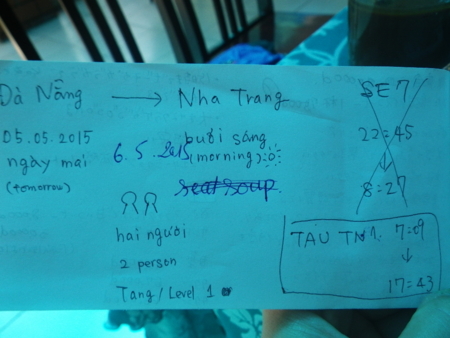 Đà Nẵng → Nha Trang
05.05.2015
ngày mai
(tomorrow)
6.5.2015
buổi sáng
(morning)
hai người
2 person
Tang / Level 1
SE 7
22:45
↓
8:27
TÀU 7:09
↓
17:43